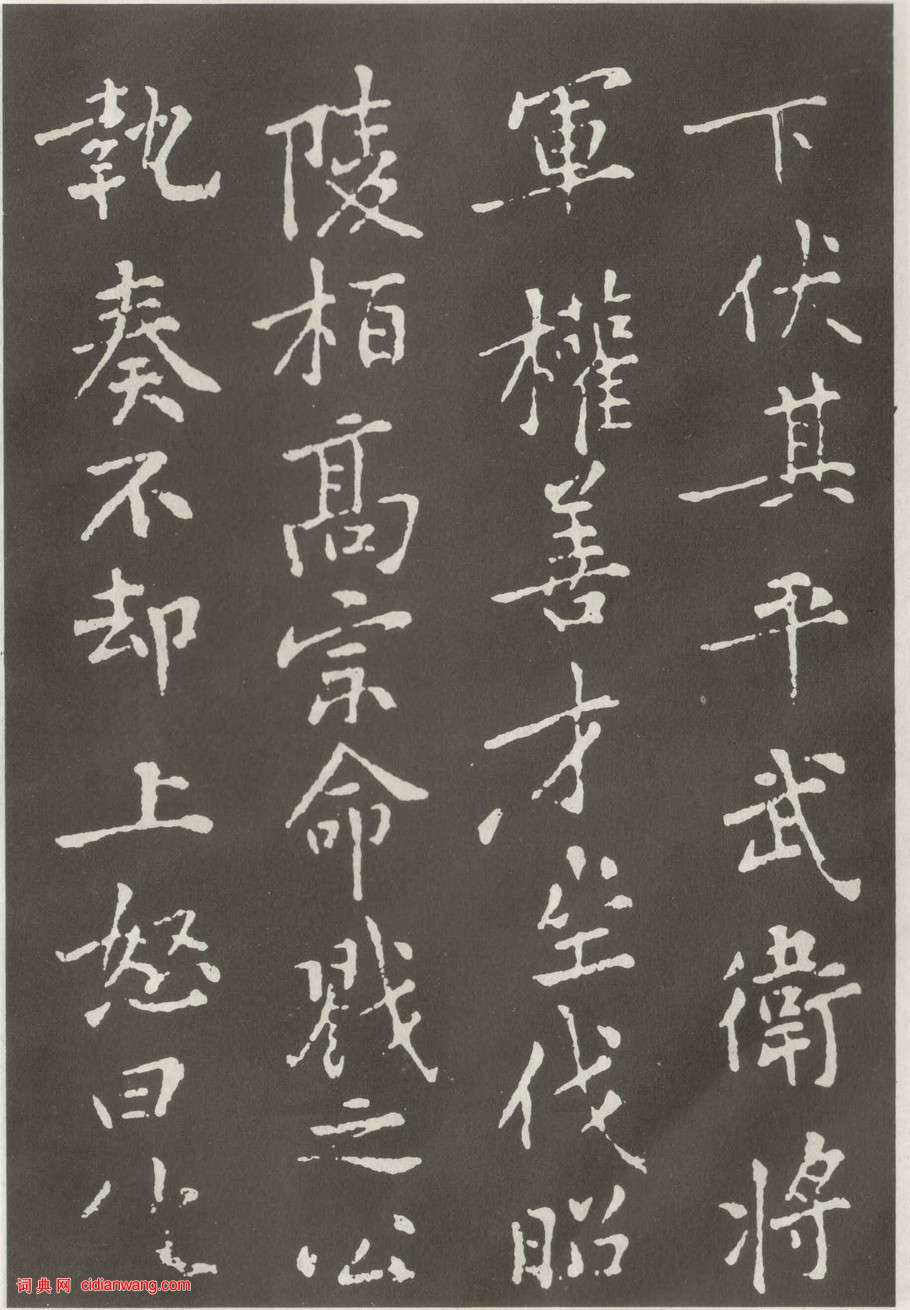 下伏其平武衛將
軍權善才坐伐昭
陵柏高宗命戮之公
執奏不却上怒曰
词典网 cidianwang.com